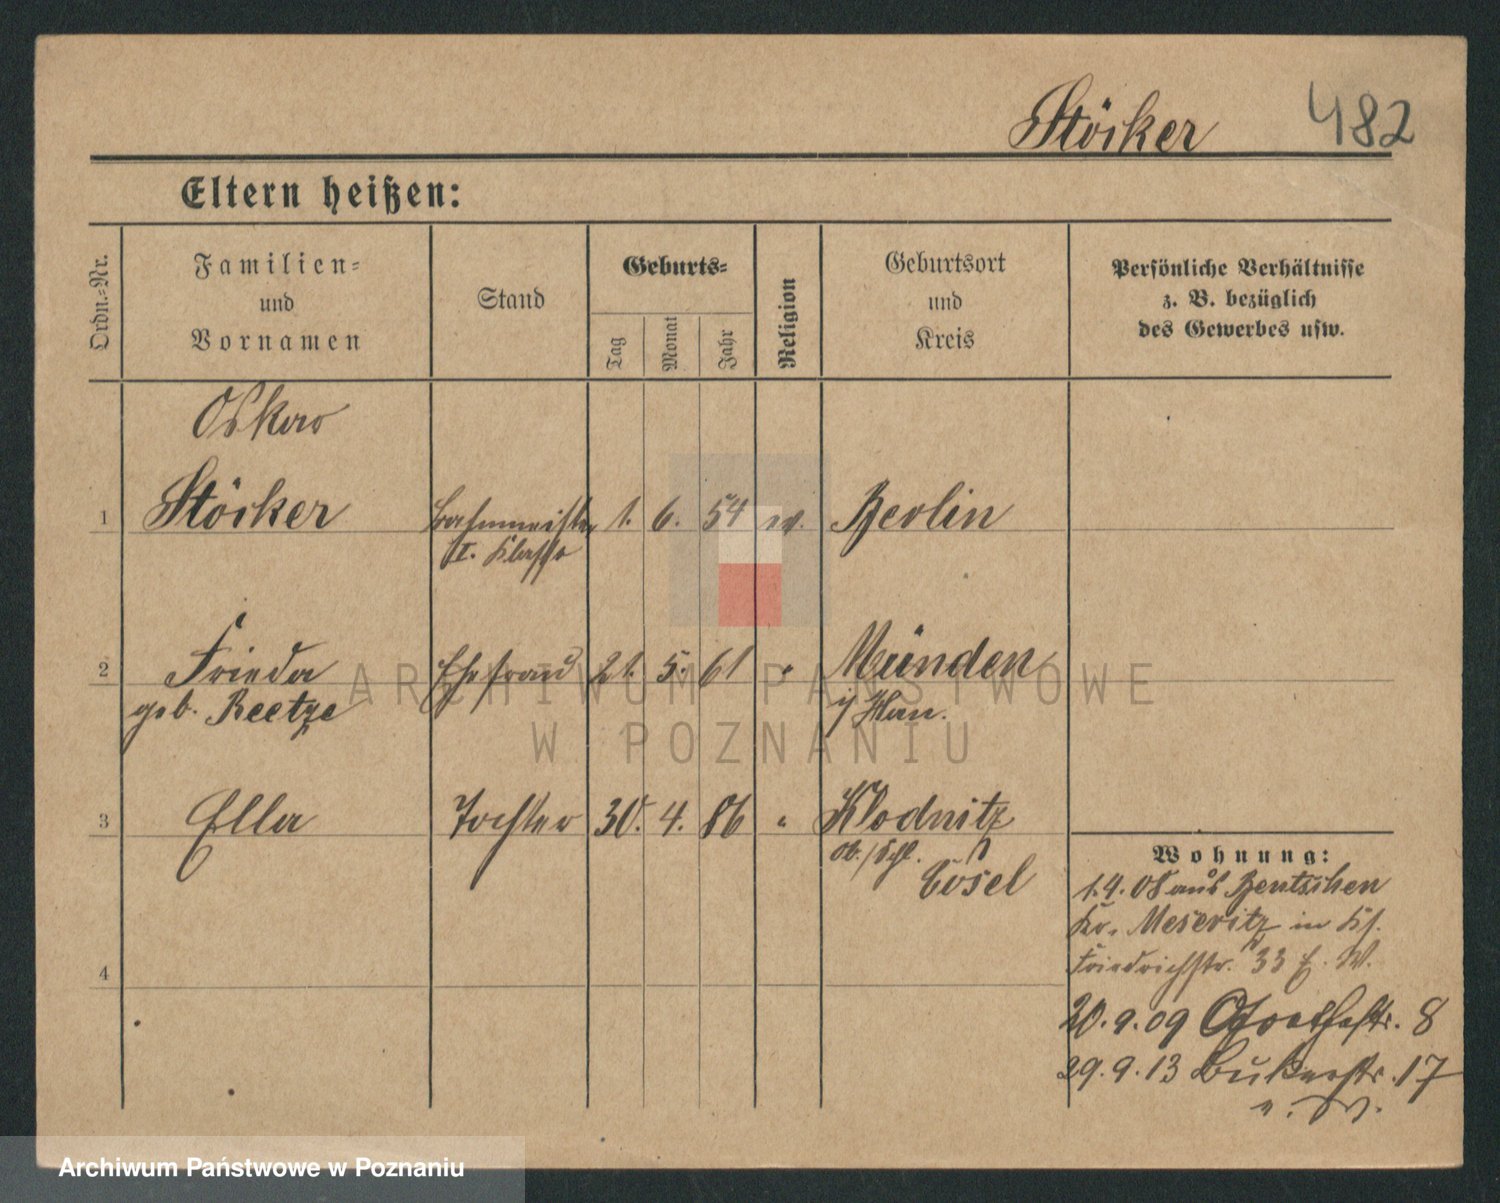 Stöcker 482
Eltern heißen:
Ordn.-Nr.
Familien-
und
Vornamen
Stand
Geburts-
Tag
Monat
Jahr
Religion
Geburtsort
und
Kreis
Persönliche Verhältnisse
z. B. bezüglich
des Gewerbes usw.
Oskar
1 Stöcker Bahnmeister 1. 6. 54 ev. Berlin
I. Klasse
2 Frieda Ehefrau 21. 5. 61 " Münden
geb. Reetze i/Han.
3 Ella Tochter 30. 4. 86 " Klodnitz
Ob./Schl.
Cosel
4
Wohnung:
1.4.08 aus Bentschen
Kr. Meseritz in
Friedrichstr. 33 E. W.
20.9.09 8
29.9.13 Bukerstr. 17
ARCHIWUM PAŃSTWOWE
W POZNANIU
Archiwum Państwowe w Poznaniu